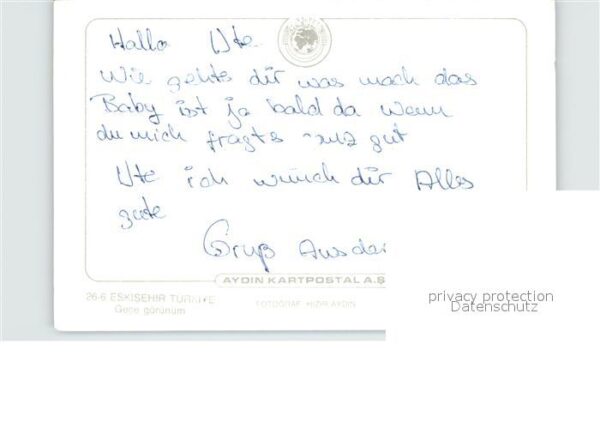 Hallo Ute
Wie gehts dir was mach das
Baby ist ja bald da wenn
du mich fragts gut
Ute ich wünch dir Alles
gute
Gruß Aus der
AYDIN KARTPOSTAL A.Ş
26-6 ESKİŞEHİR TÜRKİYE
Gece görünüm
FOTOĞRAF: HIZIR AYDIN
privacy protection
Datenschutz